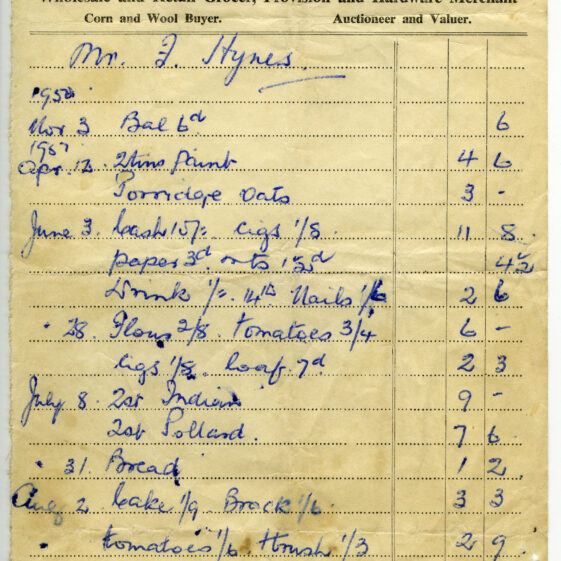 Wholesale and Retail Grocer, Provision and Hardware Merchant
Corn and Wool Buyer. Auctioneer and Valuer.
Mr. J. Hynes.
1950
Nov 3 Bal 6d 6
1951
Apr. 13 2 tins Paint 4 6
Porridge Oats 3 -
June 3. Cash 10/= Cigs 1/8. 11 8
paper 3d. 1½d 4½
Drink 1/= 14lb Nails 1/6 2 6
" 28. Flour 2/8. tomatoes 3/4 6 -
Cigs 1/8. loaf 7d 2 3
July 8. 2st Indian 9 -
2st Pollard. 7 6
" 31. Bread 1 2
Aug 2 Cake 1/9 Brock 1/6. 3 3
" tomatoes 1/6. 1/3 2 9